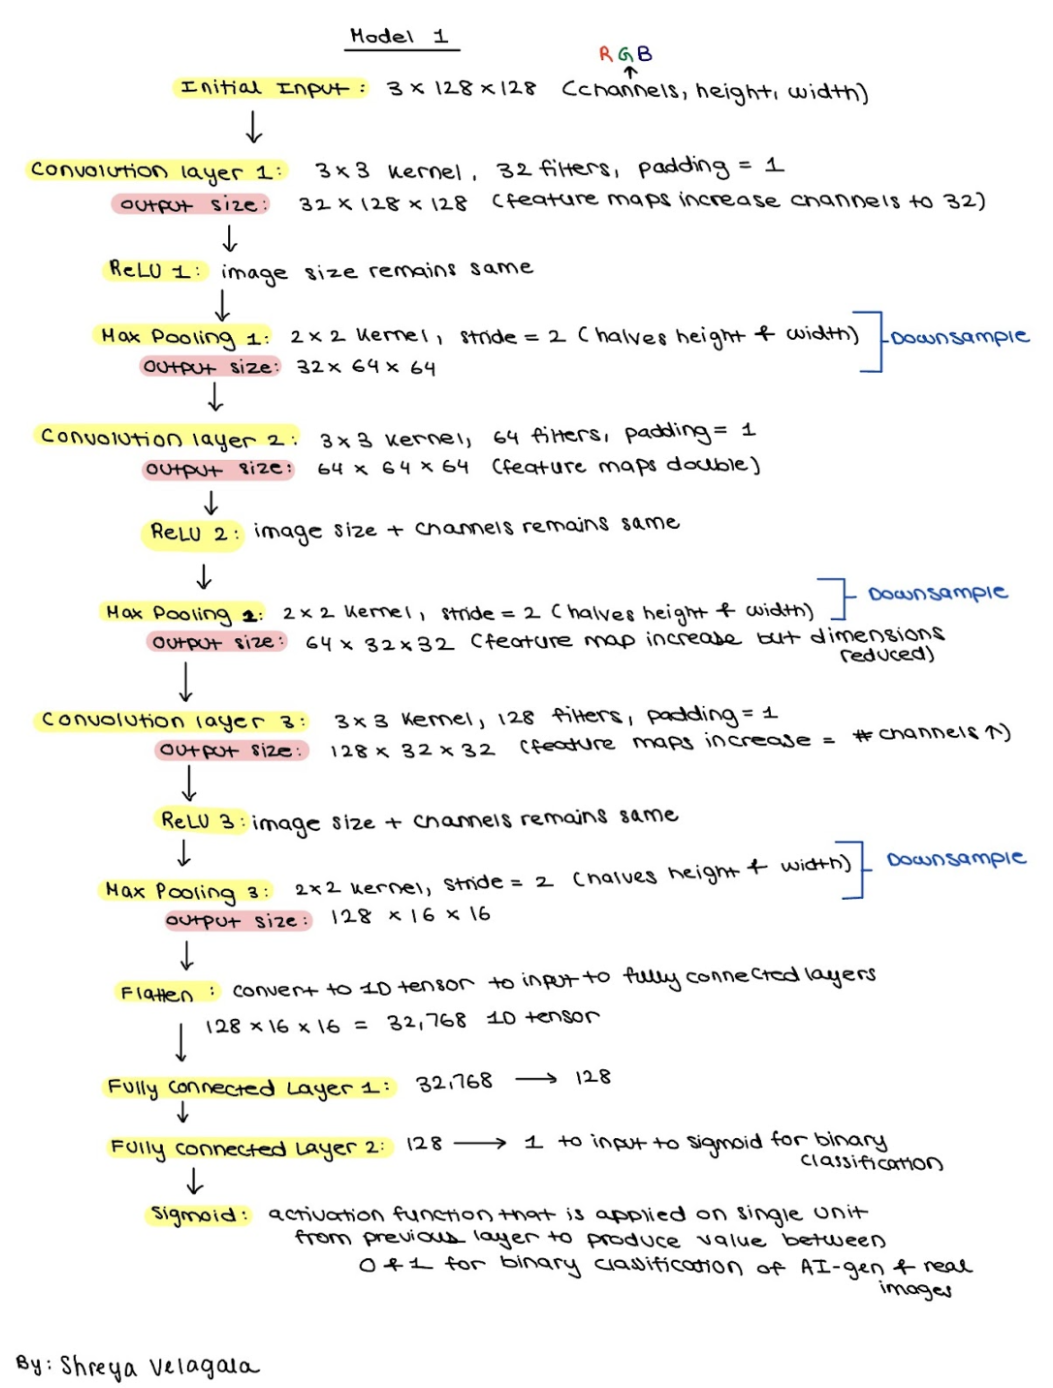 Model 1
RGB
Initial Input: 3 x 128 x 128 (channels, height, width)
Convolution layer 1: 3x3 kernel, 32 filters, padding = 1
output size: 32 x 128 x 128 (feature maps increase channels to 32)
ReLU 1: image size remains same
Max Pooling 1: 2x2 kernel, stride = 2 (halves height & width)
Downsample
output size: 32x 64 x 64
Convolution layer 2: 3x3 kernel, 64 filters, padding = 1
output size: 64 x 64 x 64 (feature maps double)
ReLU 2: image size + channels remains same
Downsample
Max Pooling 2: 2x2 kernel, stride = 2 (halves height & width)
output size: 64 x 32x32 (feature map increase but dimensions
reduced)
Convolution layer 3: 3x3 kernel, 128 filters, padding = 1
output size: 128 x 32 x 32 (feature maps increase = # channels ↑)
ReLU 3: image size + channels remains same
Downsample
Max Pooling 3: 2x2 kernel, stride = 2 (halves height & width)
output size: 128 x 16 x 16
Flatten: convert to 1D tensor to input to fully connected layers
128 x 16 x 16 = 32,768 1D tensor
Fully connected Layer 1: 32,768 → 128
Fully connected Layer 2: 128 → 1 to input to sigmoid for binary
classification
Sigmoid: activation function that is applied on single unit
from previous layer to produce value between
0 & 1 for binary classification of AI-gen & real
images
By: Shreya Velagala